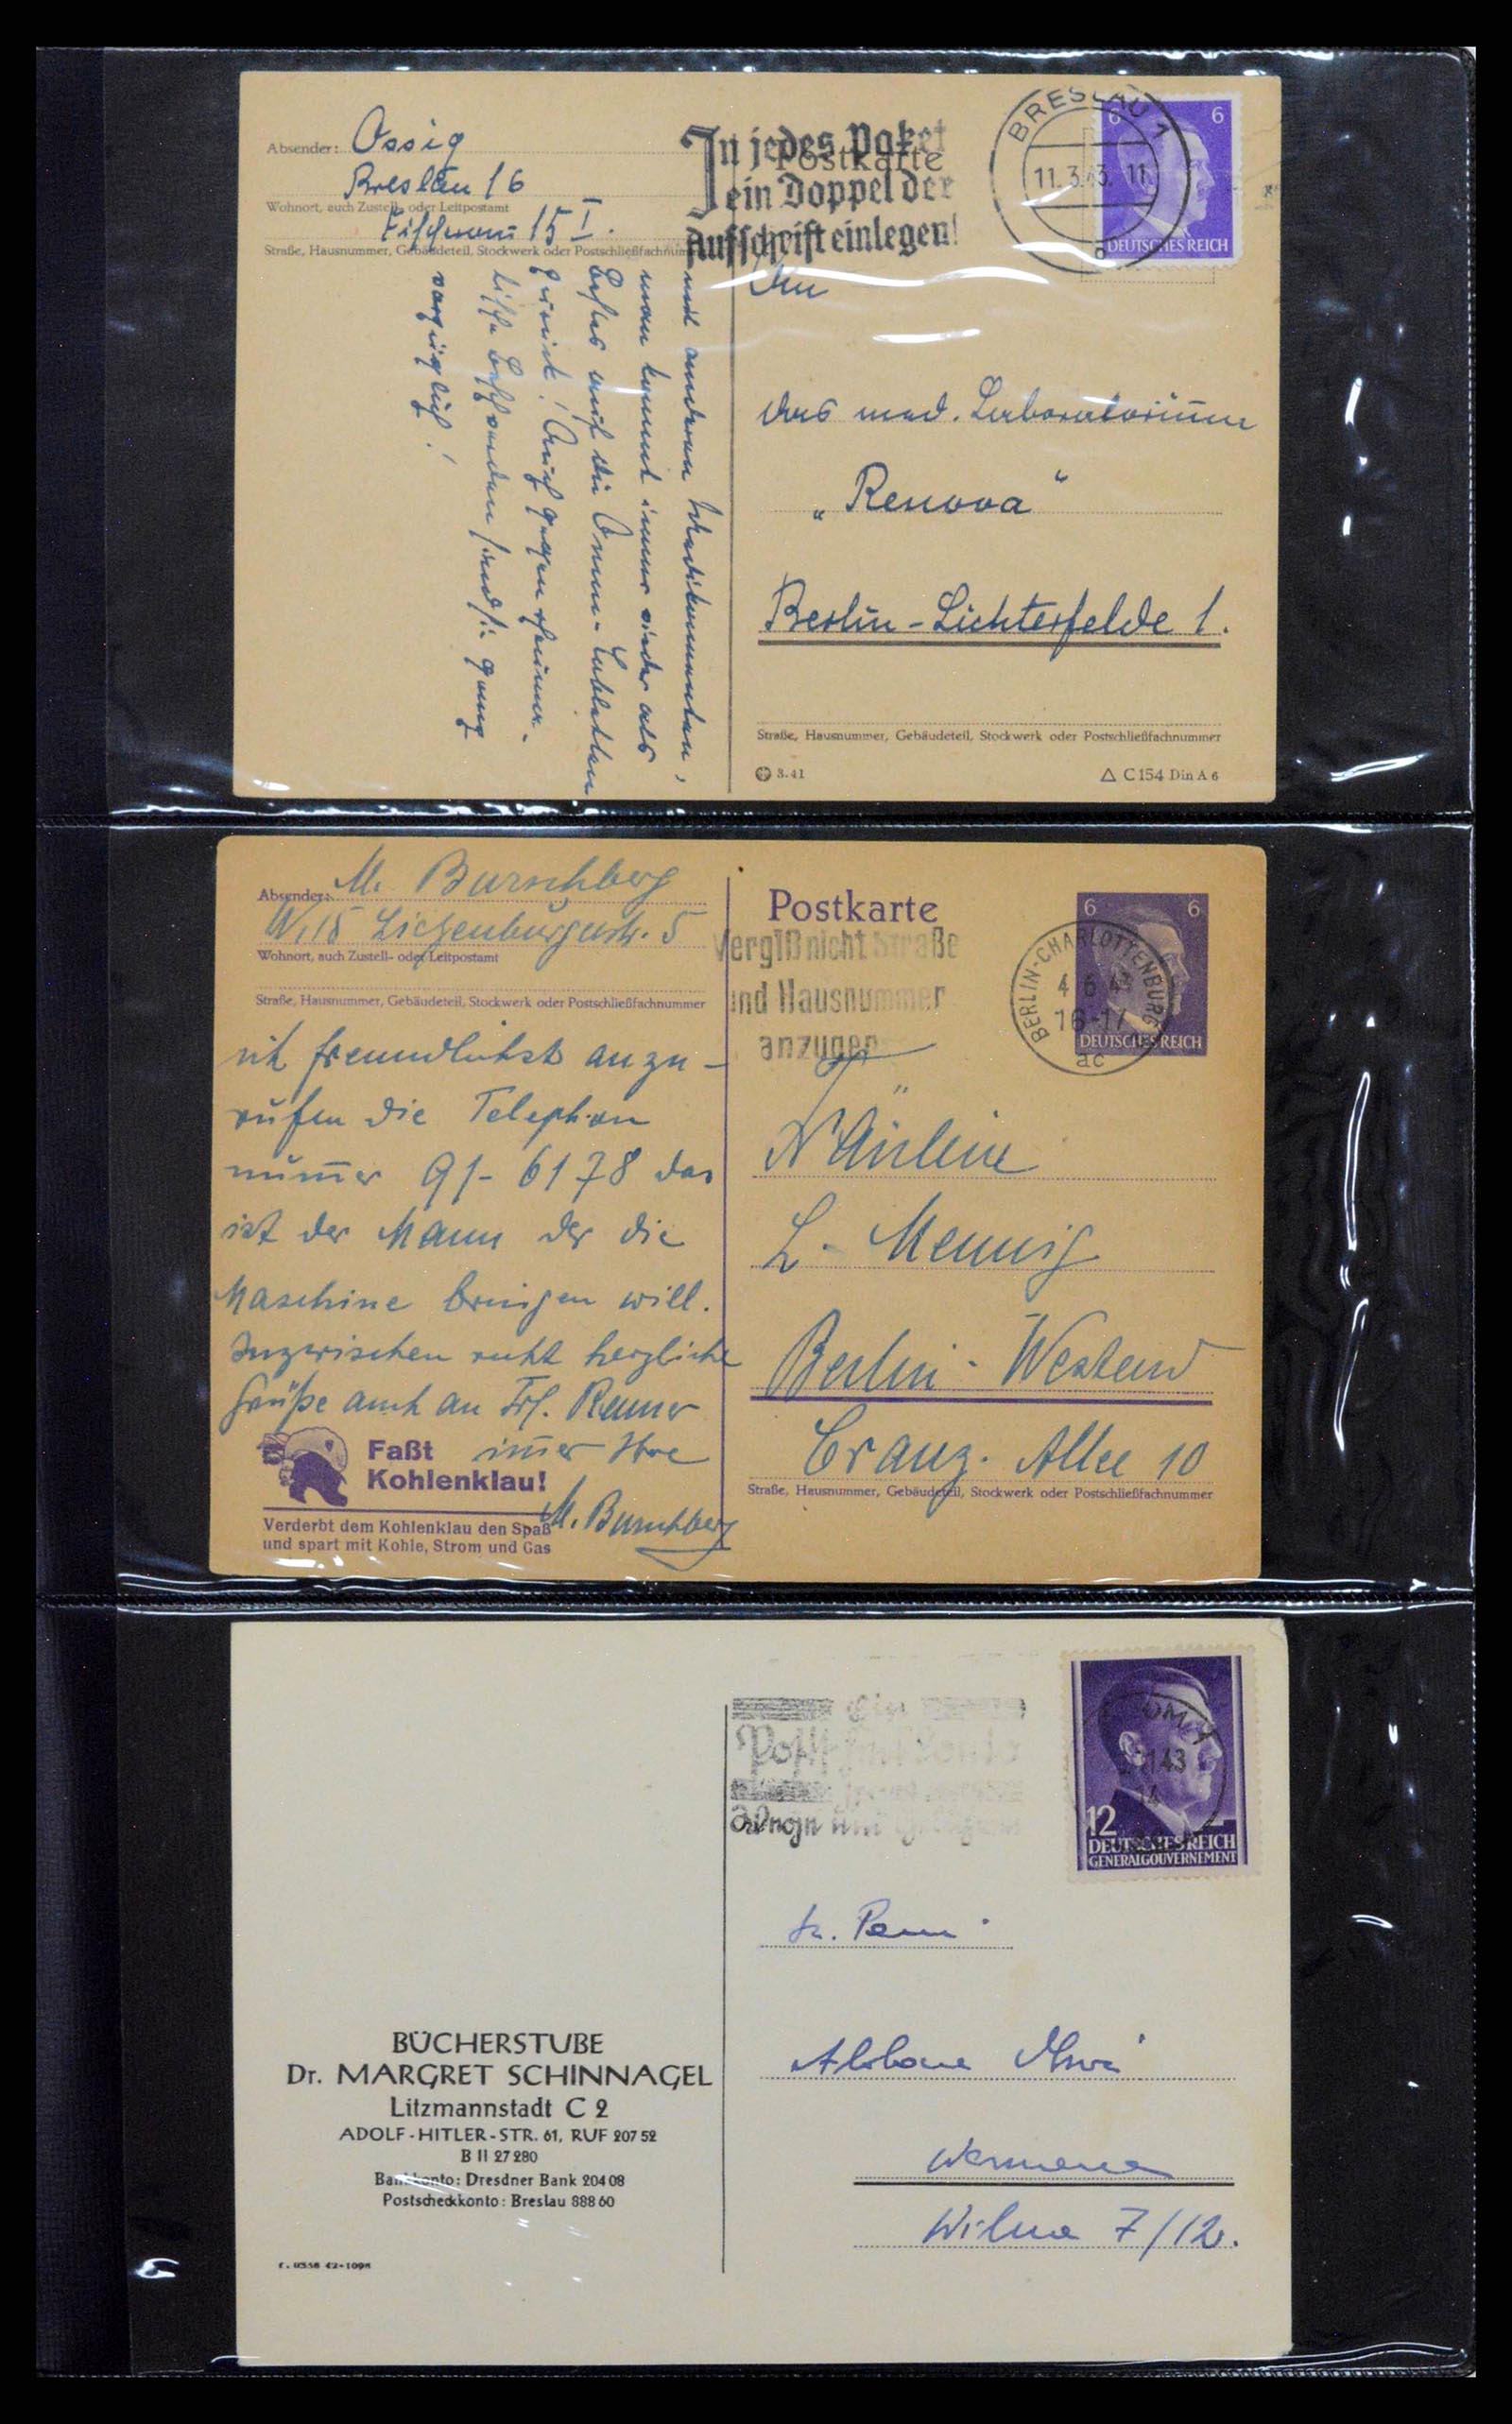 Absender: Ossig
Breslau 16
Wohnort, auch Zustell- oder Leitpostamt
15 I.
Straße, Hausnummer, Gebäudeteil, Stockwerk oder Postschließfachnummer
In jedes Paket
ein Doppel der
Aufschrift einlegen!
Postkarte
BRESLAU 1
11.3.43. 11
6 6
DEUTSCHES REICH
An
das med. Laboratorium
„Renova“
Berlin-Lichterfelde 1.
Straße, Hausnummer, Gebäudeteil, Stockwerk oder Postschließfachnummer
3.41
C 154 Din A 6
und anderen Medikamenten,
man kommt immer wieder als
Bestes auf die Tabletten
zurück! Auch gegen rheuma-
tische Beschwerden sind sie ganz
vorzüglich!
Absender: M. Burschberg
W. 15 Lietzenburgerstr. 5
Wohnort, auch Zustell- oder Leitpostamt
Straße, Hausnummer, Gebäudeteil, Stockwerk oder Postschließfachnummer
freundlichst anzu-
rufen die Telephon
num̄er 91-6178 das
ist der Mann der die
Maschine bringen will.
Inzwischen recht herzliche
Grüße auch an Frl. Renner
im̄er Ihre
M. Burschberg
Faßt
Kohlenklau!
Verderbt dem Kohlenklau den Spaß
und spart mit Kohle, Strom und Gas
Postkarte
Vergiß nicht Straße
und Hausnummer
anzugeben
BERLIN-CHARLOTTENBURG
4.6.43
16-17
ac
6 6
DEUTSCHES REICH
Fräulein
L. Mennig
Berlin-Westend
Cranz. Allee 10
Straße, Hausnummer, Gebäudeteil, Stockwerk oder Postschließfachnummer
Ein
43
14
12
DEUTSCHES REICH
GENERALGOUVERNEMENT
BÜCHERSTUBE
Dr. MARGRET SCHINNAGEL
Litzmannstadt C 2
ADOLF-HITLER-STR. 61, RUF 207 52
B II 27 280
Bankkonto: Dresdner Bank 204 08
Postscheckkonto: Breslau 888 60
Wilna 7/12.